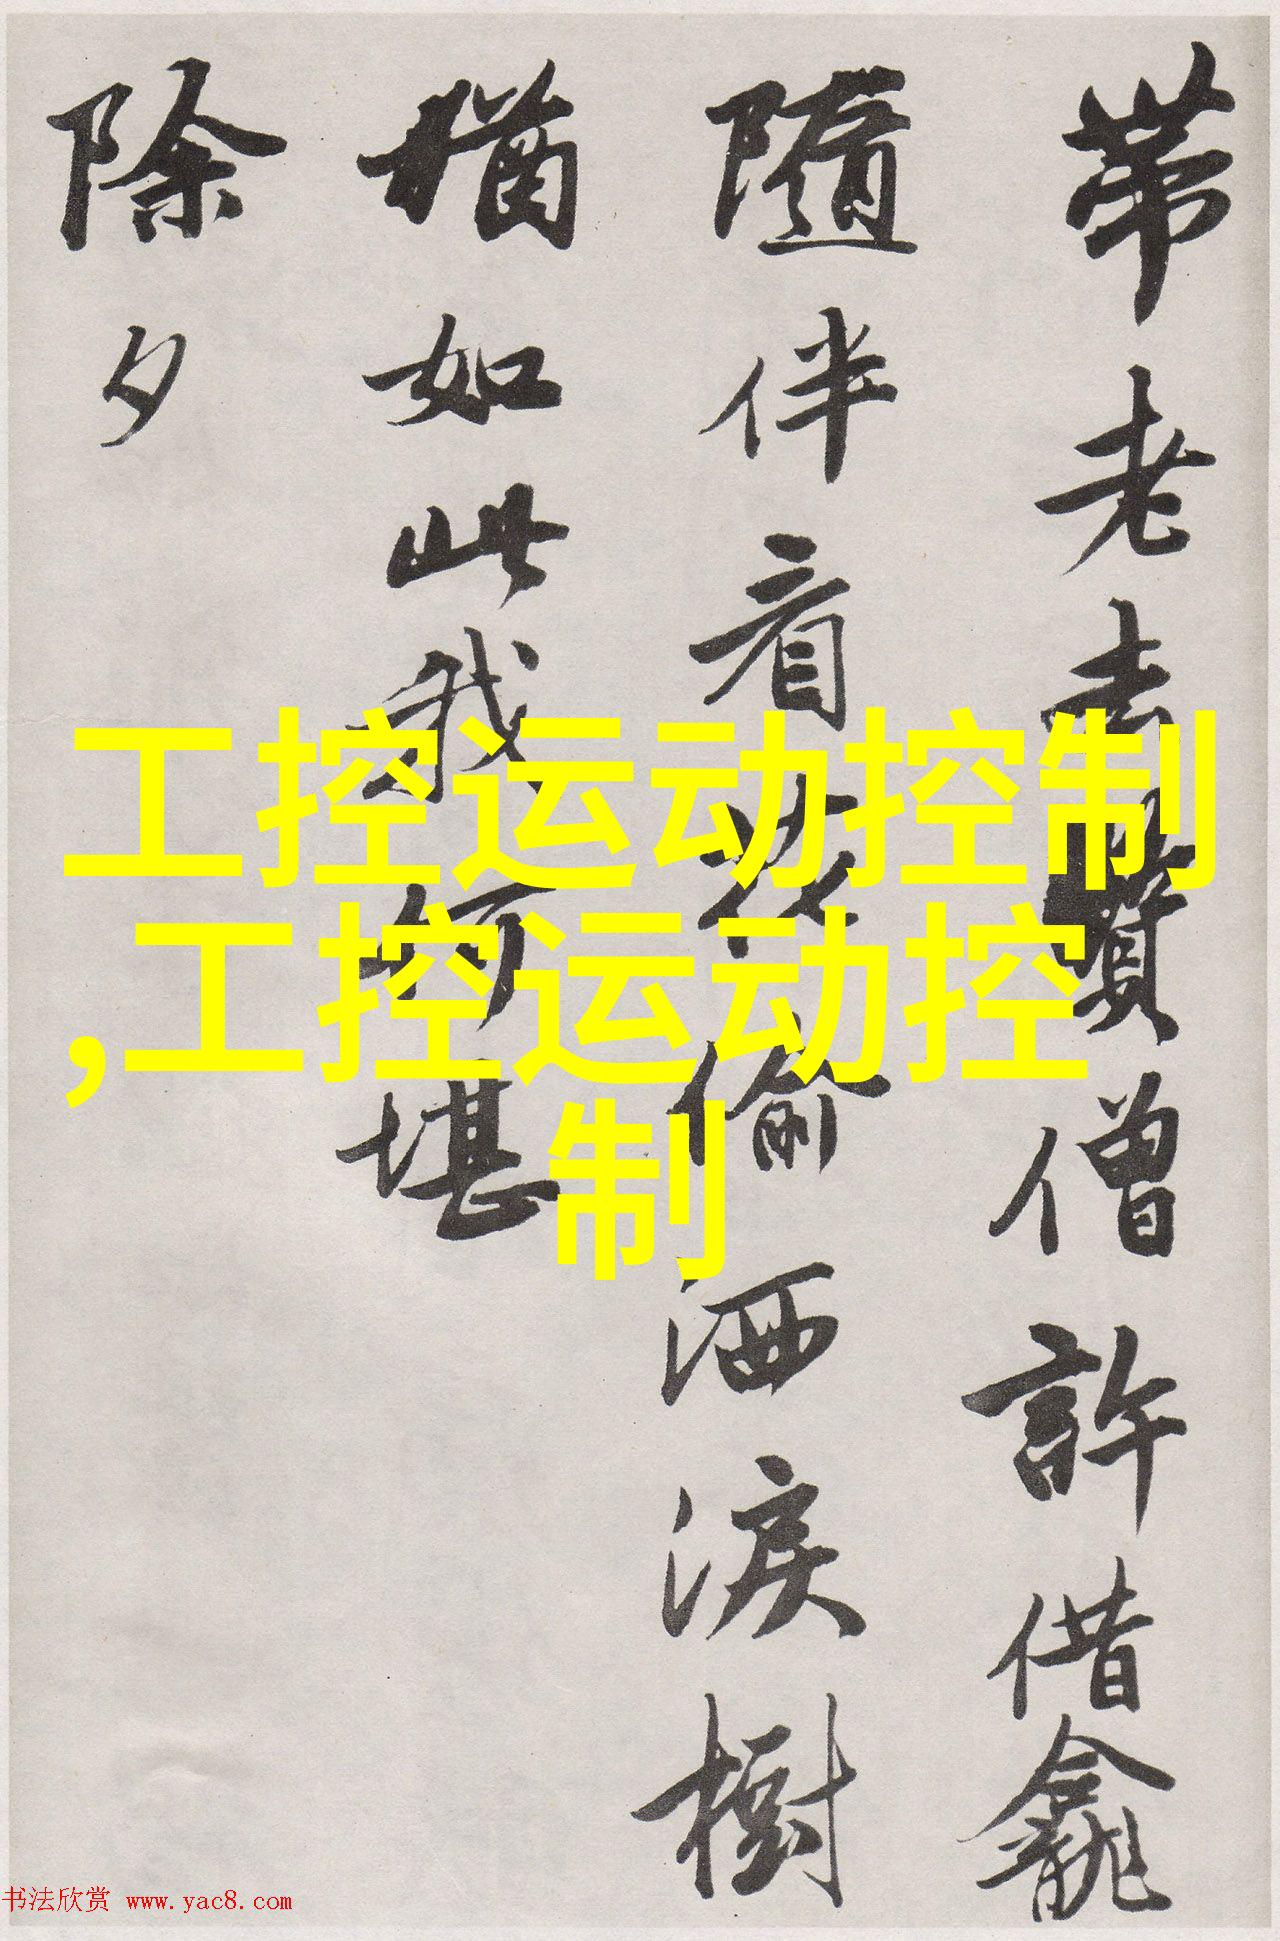 帶老去賛僧許借龕
隨伴看花偷洒淚樹
猶如此我何堪
除夕
工控运动控制
,工控运动控
制
书法欣赏 www.yac8.com